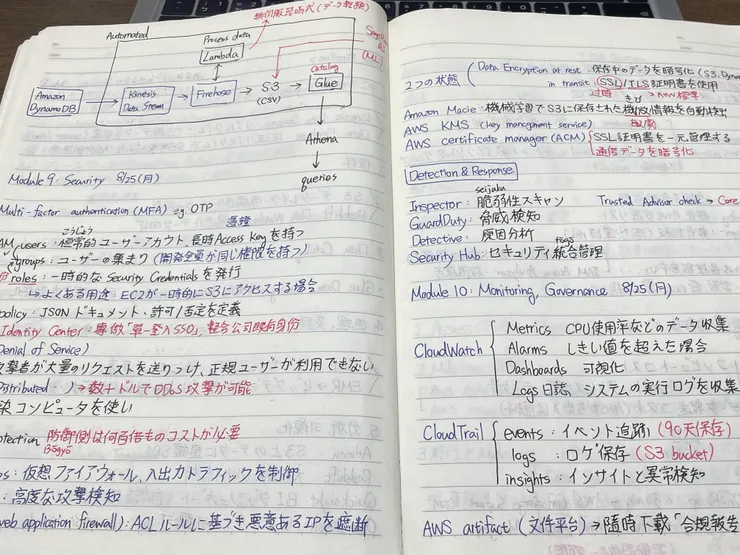 Automated
Process data
Lambda
Amazon
DynamoDB
Kinesis
Data Stream
Firehose
S3
(CSV)
Catalog
Glue
(ML)
Athena
queries
Module 9: Security 8/25(月)
Multi-factor authentication (MFA) eg OTP
こうじょう
憑證
users: 恒常的ユーザーアカウント、長時Access Keyを持つ
groups: ユーザーの集まり (開発全員が同じ権限を持つ)
roles: 一時的な Security Credentials を発行
↳よくある用途: EC2が一時的にS3にアクセスする場合
policy: JSON ドキュメント、許可/否定を定義
Identity Center: 專做「單一登入SSO」, 整合公司既有身份
Denial of Service)
攻撃者が大量のリクエストを送りつけ、正規ユーザーが利用できない
Distributed → 数十ドルでDDoS攻撃が可能
染コンピュータを使い
防御側は何百倍ものコストが必要
ぼうぎょ
: 仮想ファイアウォール、入出力トラフィックを制御
: 高度な攻撃検知
web application firewall): ACLルールに基づき悪意あるIPを遮断
2つの状態
Data Encryption at rest 保存中のデータを暗号化 (S3, Dynam
in transit (SSL)/TLS証明書を使用
過時
Amazon Macie: 機械学習でS3に保存された機微情報を自動検出
きび
敏感
AWS KMS (key management service)
AWS certificate manager (ACM)
SSL証明書を一元管理する
通信データを暗号化
Detection & Response
seijaku
Inspector: 脆弱性スキャン Trusted Advisor check → Core
GuardDuty: 脅威検知
Detective: 原因分析
Security Hub: セキュリティ統合管理
Module 10: Monitoring, Governance 8/25(月)
CloudWatch
Metrics CPU使用率などのデータ収集
Alarms しきい値を超えた場合
Dashboards 可視化
Logs日誌 システムの実行ログを収集
CloudTrail
events: イベント追跡 (90天保存)
logs: ログ保存 (S3 bucket)
insights: インサイトと異常検知
AWS artifact (文件平台) → 隨時下載「合規報告